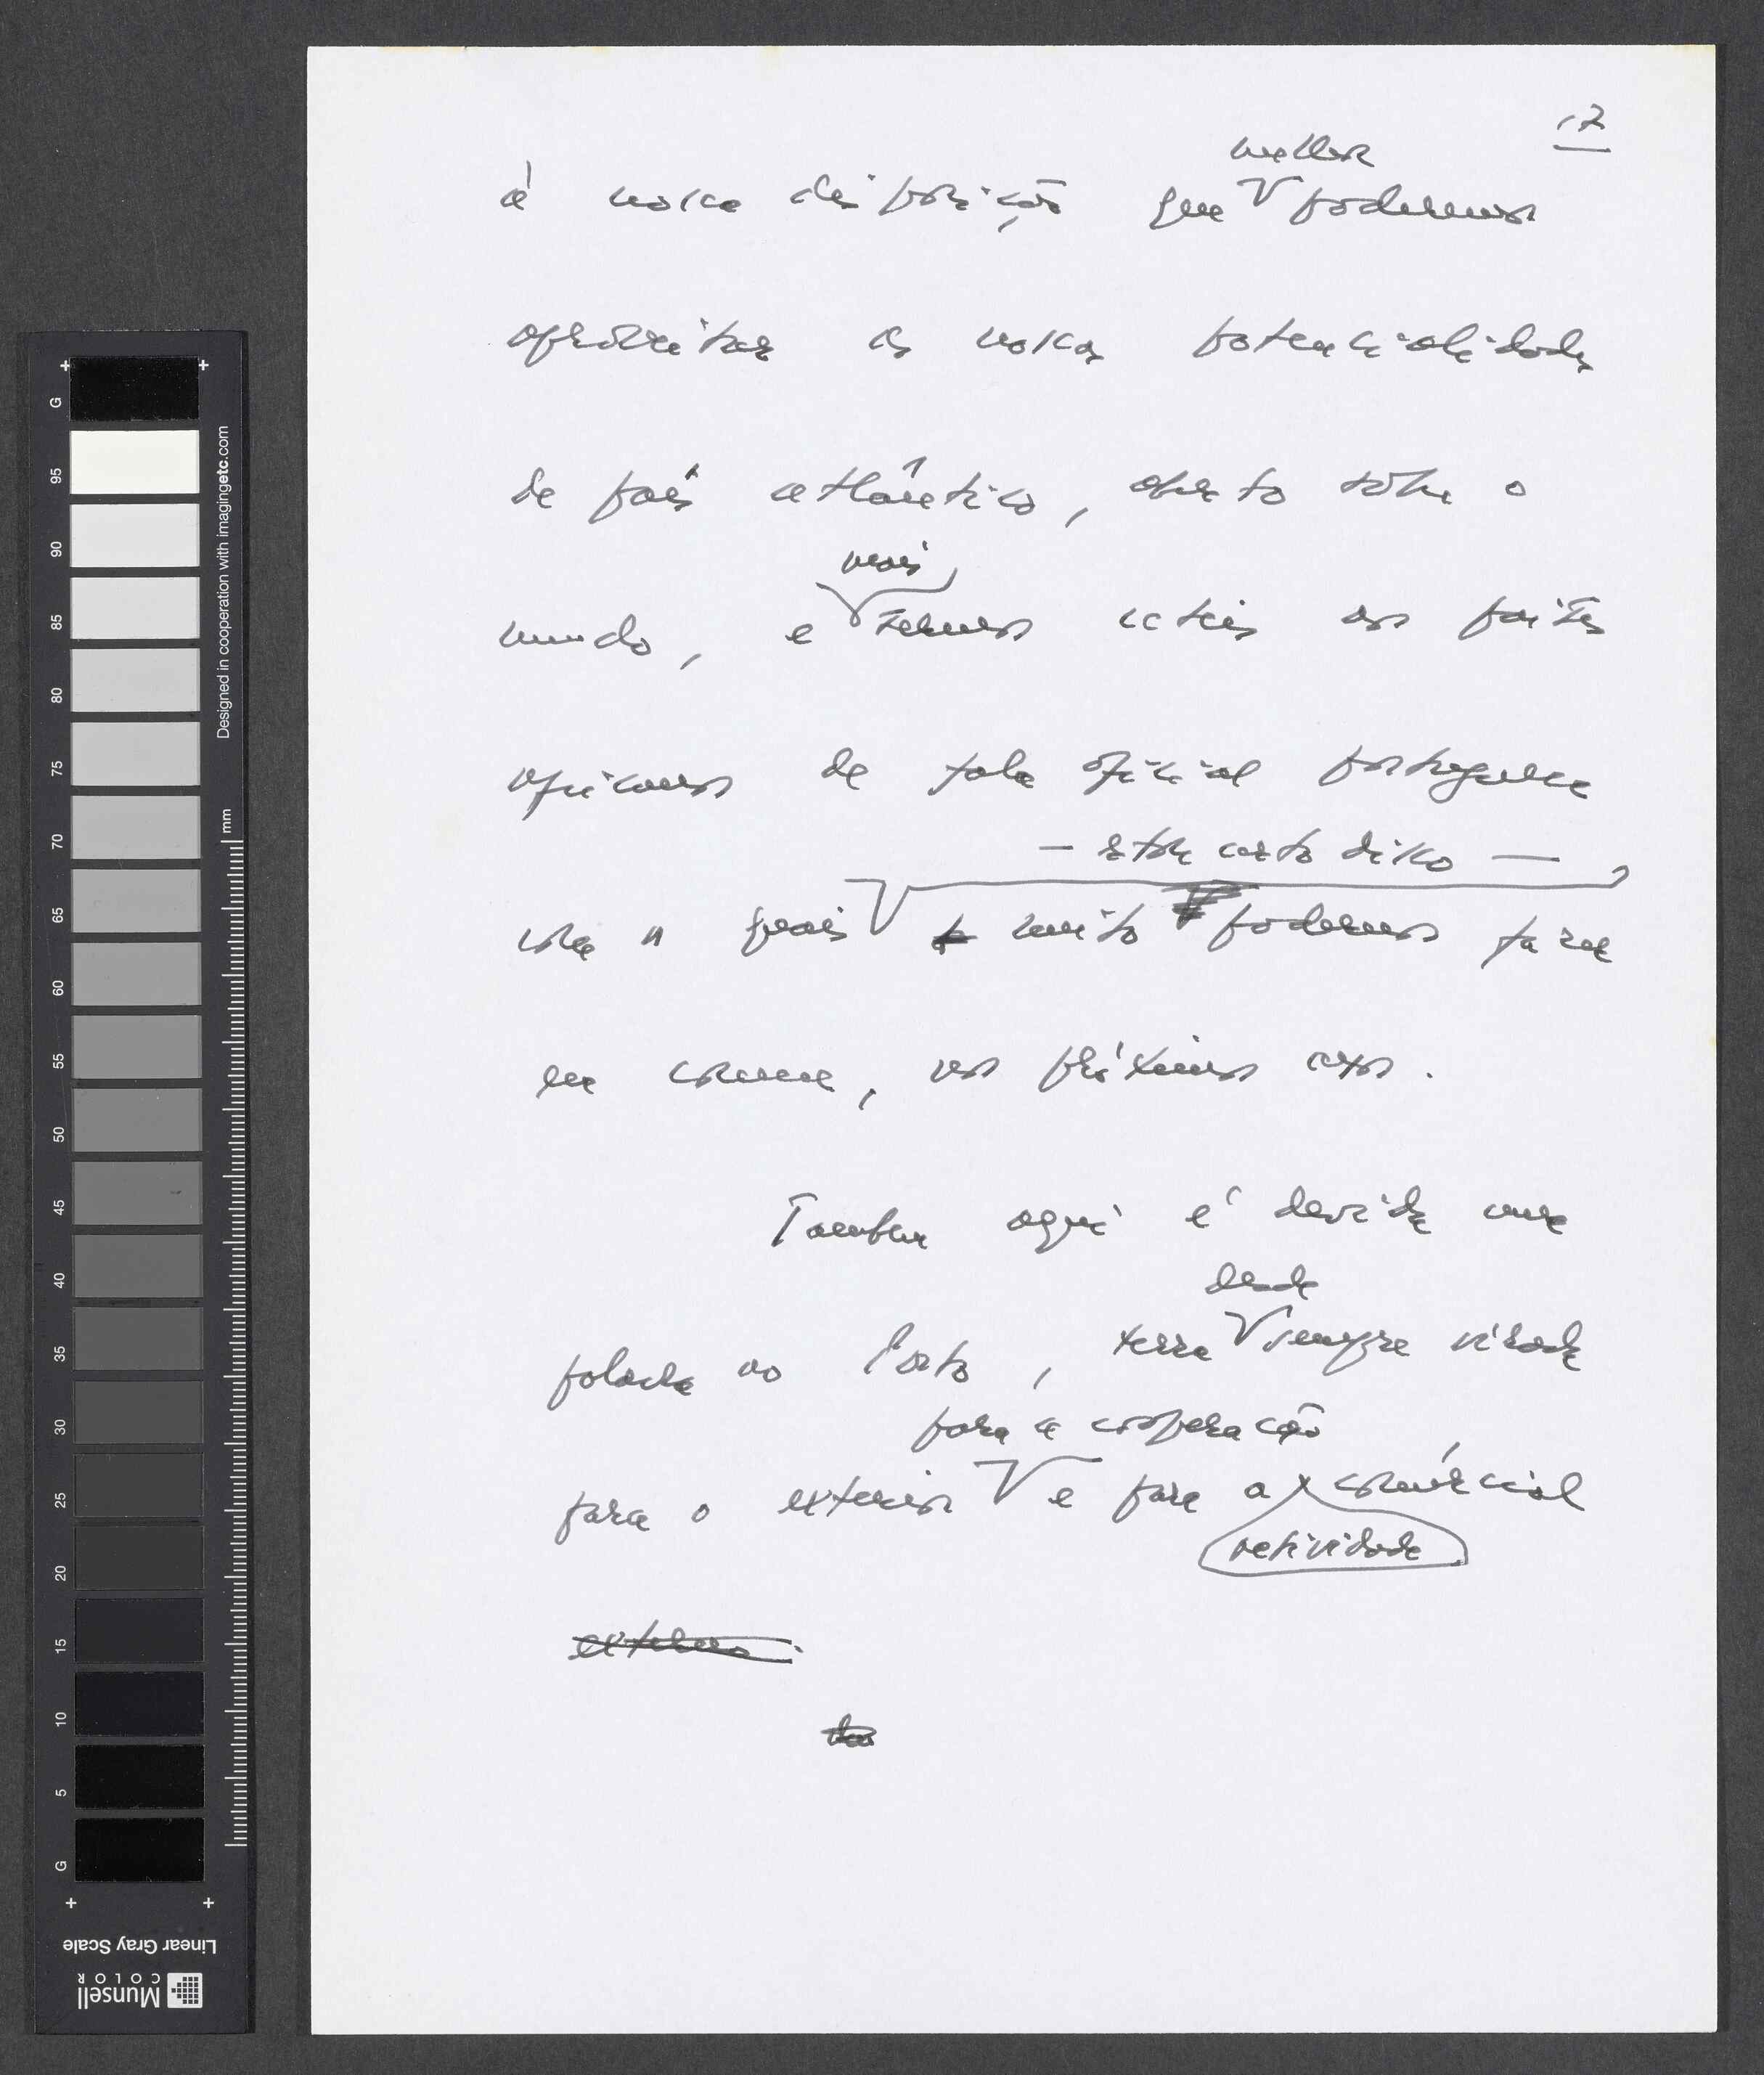 17
melhor
à nossa disposição que podermos
aproveitar as nossas potencialidades
de país atlântico, aberto sobre o
mais
mundo, e sermos úteis aos países
africanos de fala oficial portuguesa
— estou certo disso —
com os quais muito podemos fazer
em comum, nos próximos anos.
Também aqui é devida uma
desde
palavra ao Porto, terra sempre virada
para a cooperação
para o exterior e para a comércial
actividade
externa.
G
95
90
85
80
75
70
65
60
55
50
45
40
35
30
25
20
15
10
5
G
mm
Designed in cooperation with imagingetc.com
Linear Gray Scale
Munsell
COLOR